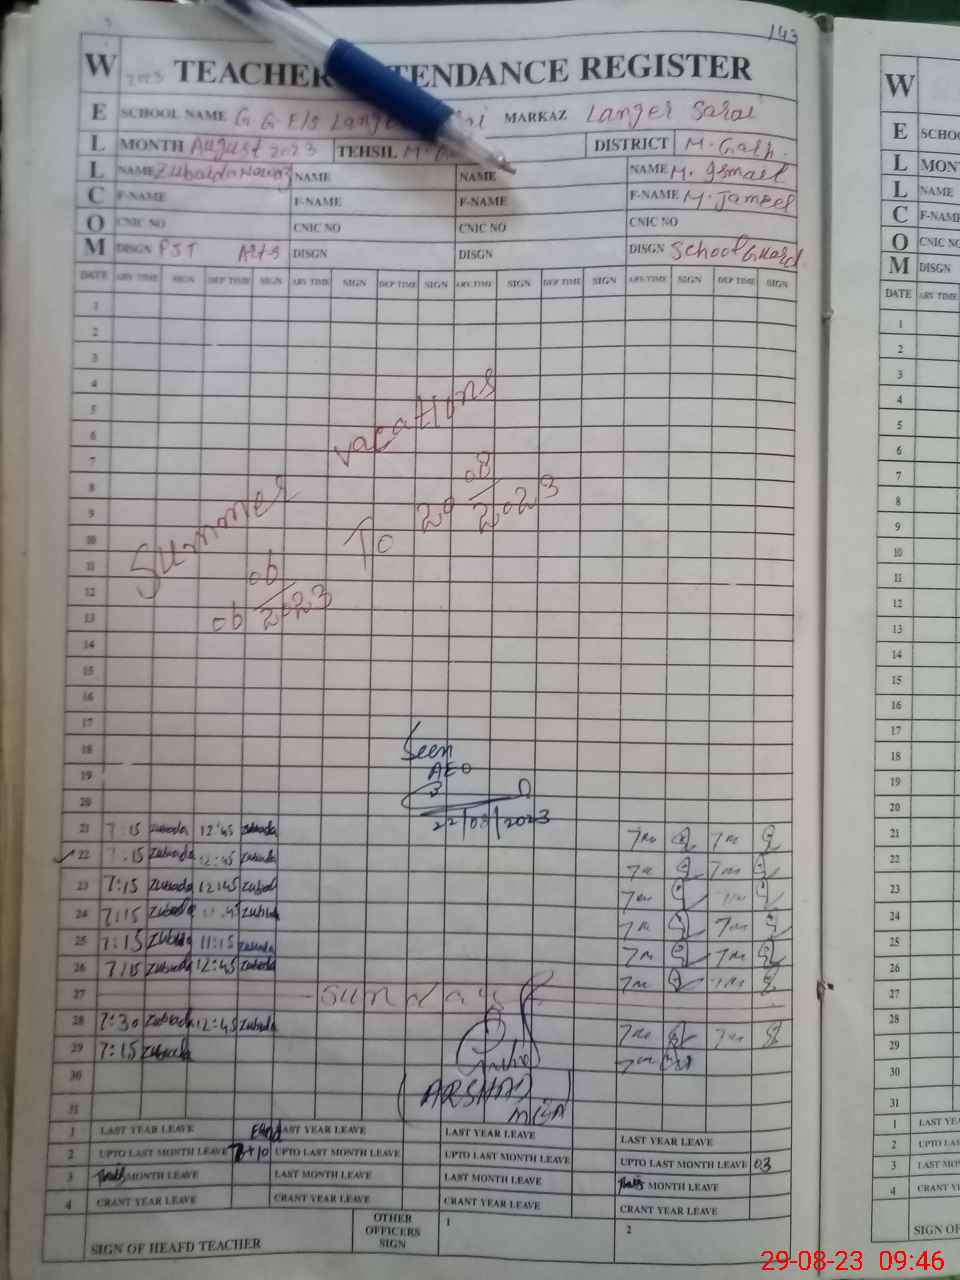 143
W 2023 TEACHER TENDANCE REGISTER
E SCHOOL NAME G G E/S MARKAZ Langer Sarai
L MONTH August 2023 TEHSIL DISTRICT M. Garh.
L NAME NAME NAME NAME M. Ismail
C F-NAME F-NAME F-NAME F-NAME M. Jameel
O CNIC NO CNIC NO CNIC NO CNIC NO
M DISGN PST Arts DISGN DISGN DISGN School Guard
DATE ARV TIME SIGN DEP TIME SIGN ARV TIME SIGN DEP TIME SIGN ARV.TIME SIGN DEP TIME SIGN ARV.TIME SIGN DEP TIME SIGN
1
2
3
4
5
6
7
8
9
10
11
12
13
14
15
16
17
18
19
20
Summer vacations
06 06/2023 To 20 08/2023
Seen
AEO
22/08/2023
21 7:15 Zubada 12:45 Zubada
22 7:15 Zubada 12:45 Zubada
23 7:15 Zubada 12:45 Zubada
24 7:15 Zubada 45 Zubada
25 7:15 Zubada 11:15 Zubada
26 7:15 Zubada 12:45 Zubada
27 Sunday
28 7:30 Zubada 12:45 Zubada
29 7:15 Zubada
30
31
(ARSHAD)
1 LAST YEAR LEAVE LAST YEAR LEAVE LAST YEAR LEAVE LAST YEAR LEAVE
2 UPTO LAST MONTH LEAVE UPTO LAST MONTH LEAVE UPTO LAST MONTH LEAVE UPTO LAST MONTH LEAVE 03
3 MONTH LEAVE LAST MONTH LEAVE LAST MONTH LEAVE MONTH LEAVE
4 CRANT YEAR LEAVE CRANT YEAR LEAVE CRANT YEAR LEAVE CRANT YEAR LEAVE
SIGN OF HEAFD TEACHER OTHER OFFICERS SIGN 1 2
W
E SCHOO
L MONT
L NAME
C F-NAME
O CNIC NO
M DISGN
DATE ARV TIME
1
2
3
4
5
6
7
8
9
10
11
12
13
14
15
16
17
18
19
20
21
22
23
24
25
26
27
28
29
30
31
1 LAST YEA
2 UPTO LAS
3 LAST MO
4 CRANT Y
SIGN OF
29-08-23 09:46